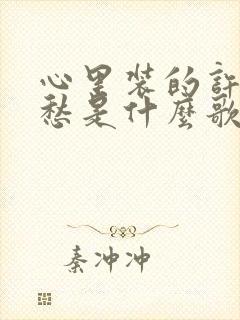 心里装的许
愁是什麼歌
秦冲冲